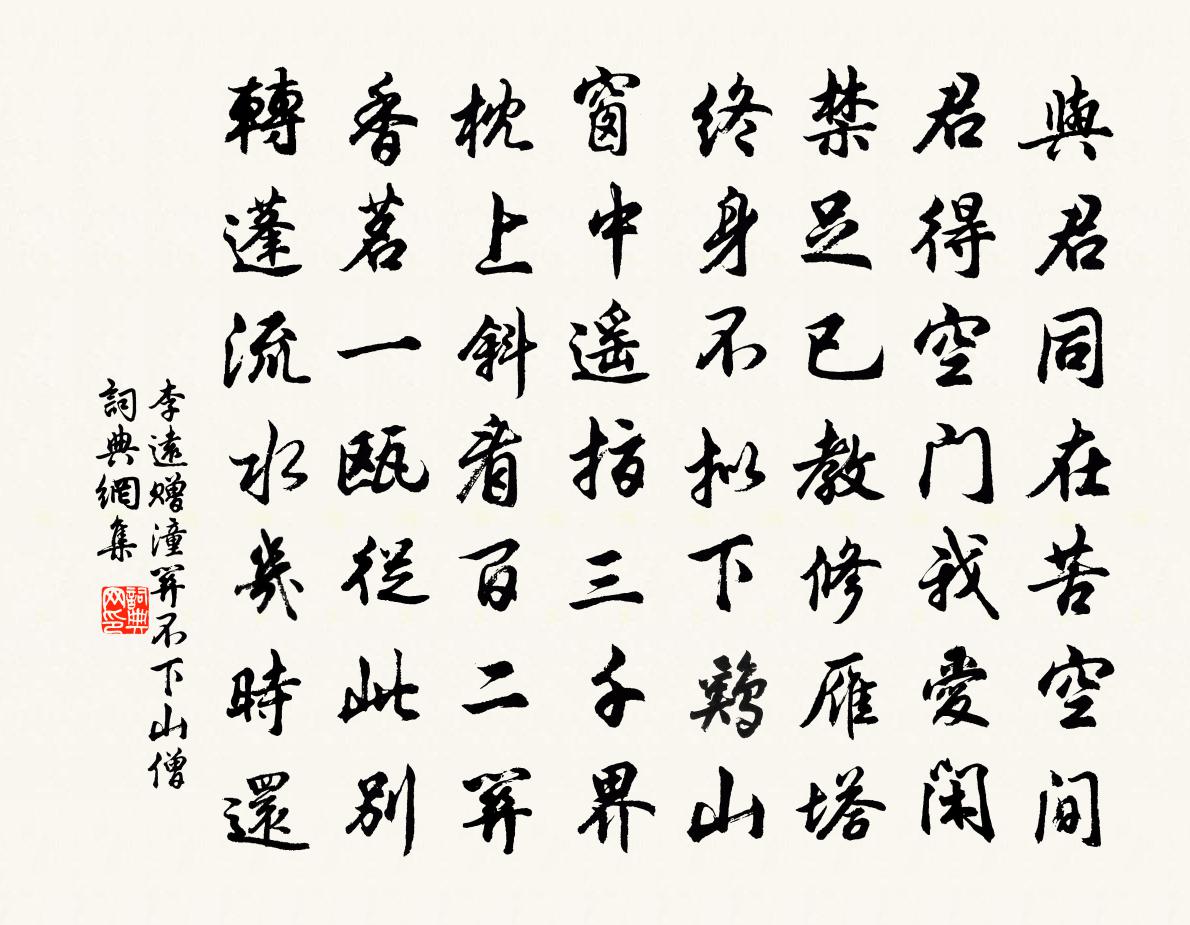 與君同在苦空間
君得空門我愛閑
禁足已教修雁塔
終身不擬下鷄山
窗中遥指三千界
枕上斜看百二關
香茗一甌從此別
轉蓬流水幾時還
李遠贈潼關不下山僧
詞典網集
詞典网印